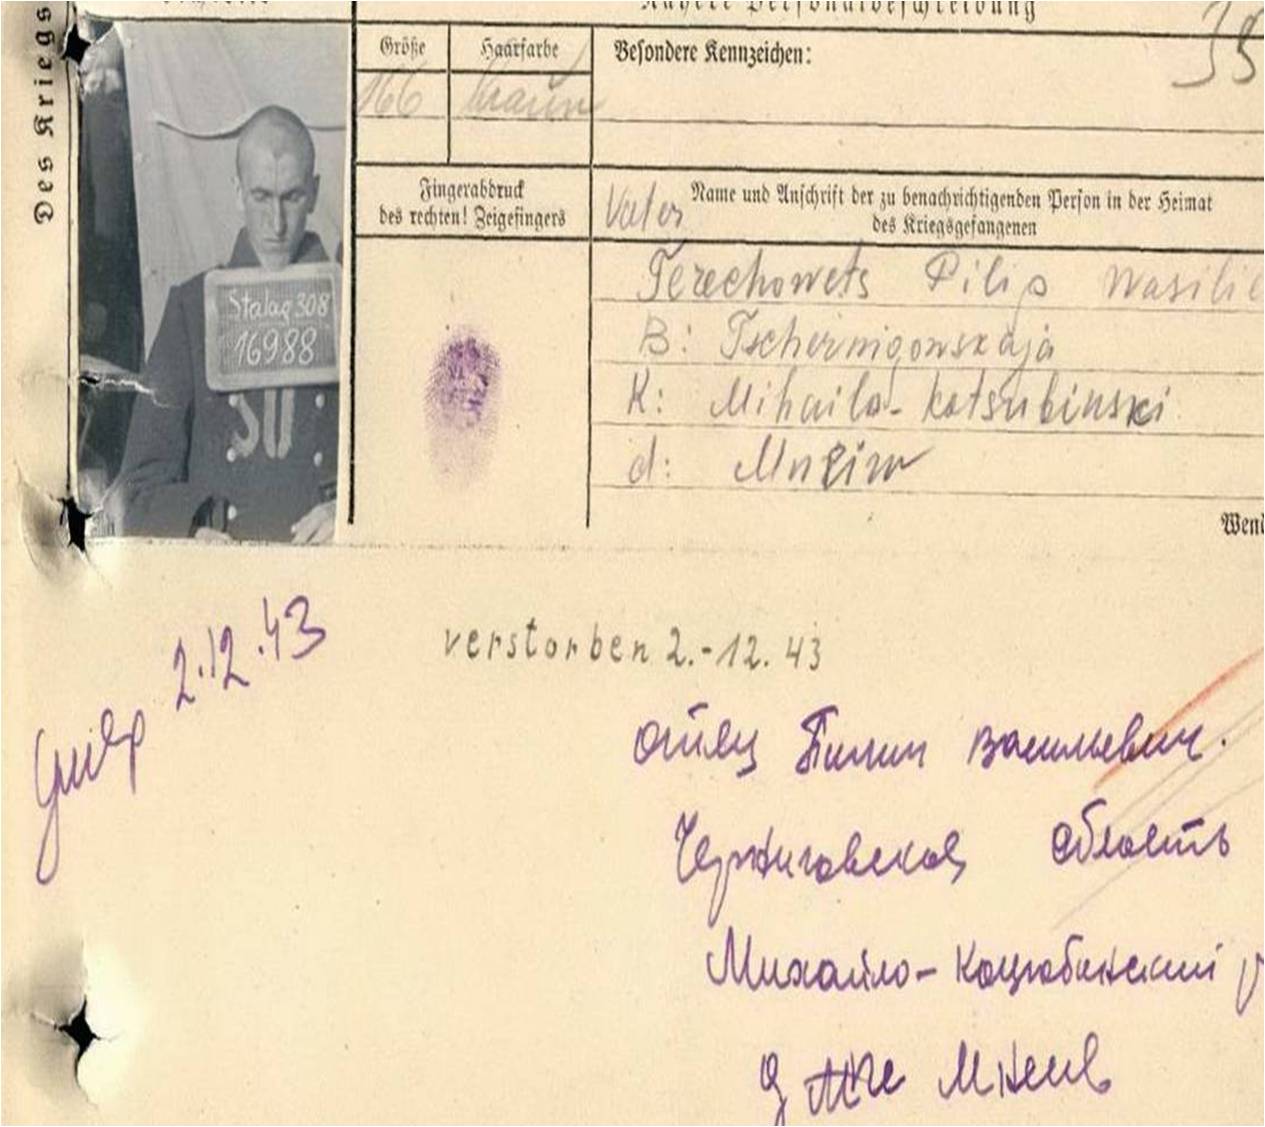 Des Kriegs
Nähere Personalbeschreibung
Größe
Haarfarbe
Besondere Kennzeichen:
35
166
braun
Fingerabdruck
des rechten! Zeigefingers
Vater
Name und Anschrift der zu benachrichtigenden Person in der Heimat
des Kriegsgefangenen
Terechowets Pilip Wasilie
B: Tschernigowskaja
K: Mihailo-Kotsubinski
d:
Stalag 308
16988
SU
Wend
умер 2.12.43
verstorben 2.-12. 43
отец Пилип Васильевич.
Черниговская область
Михайло-Коцюбинский р
д Мнев